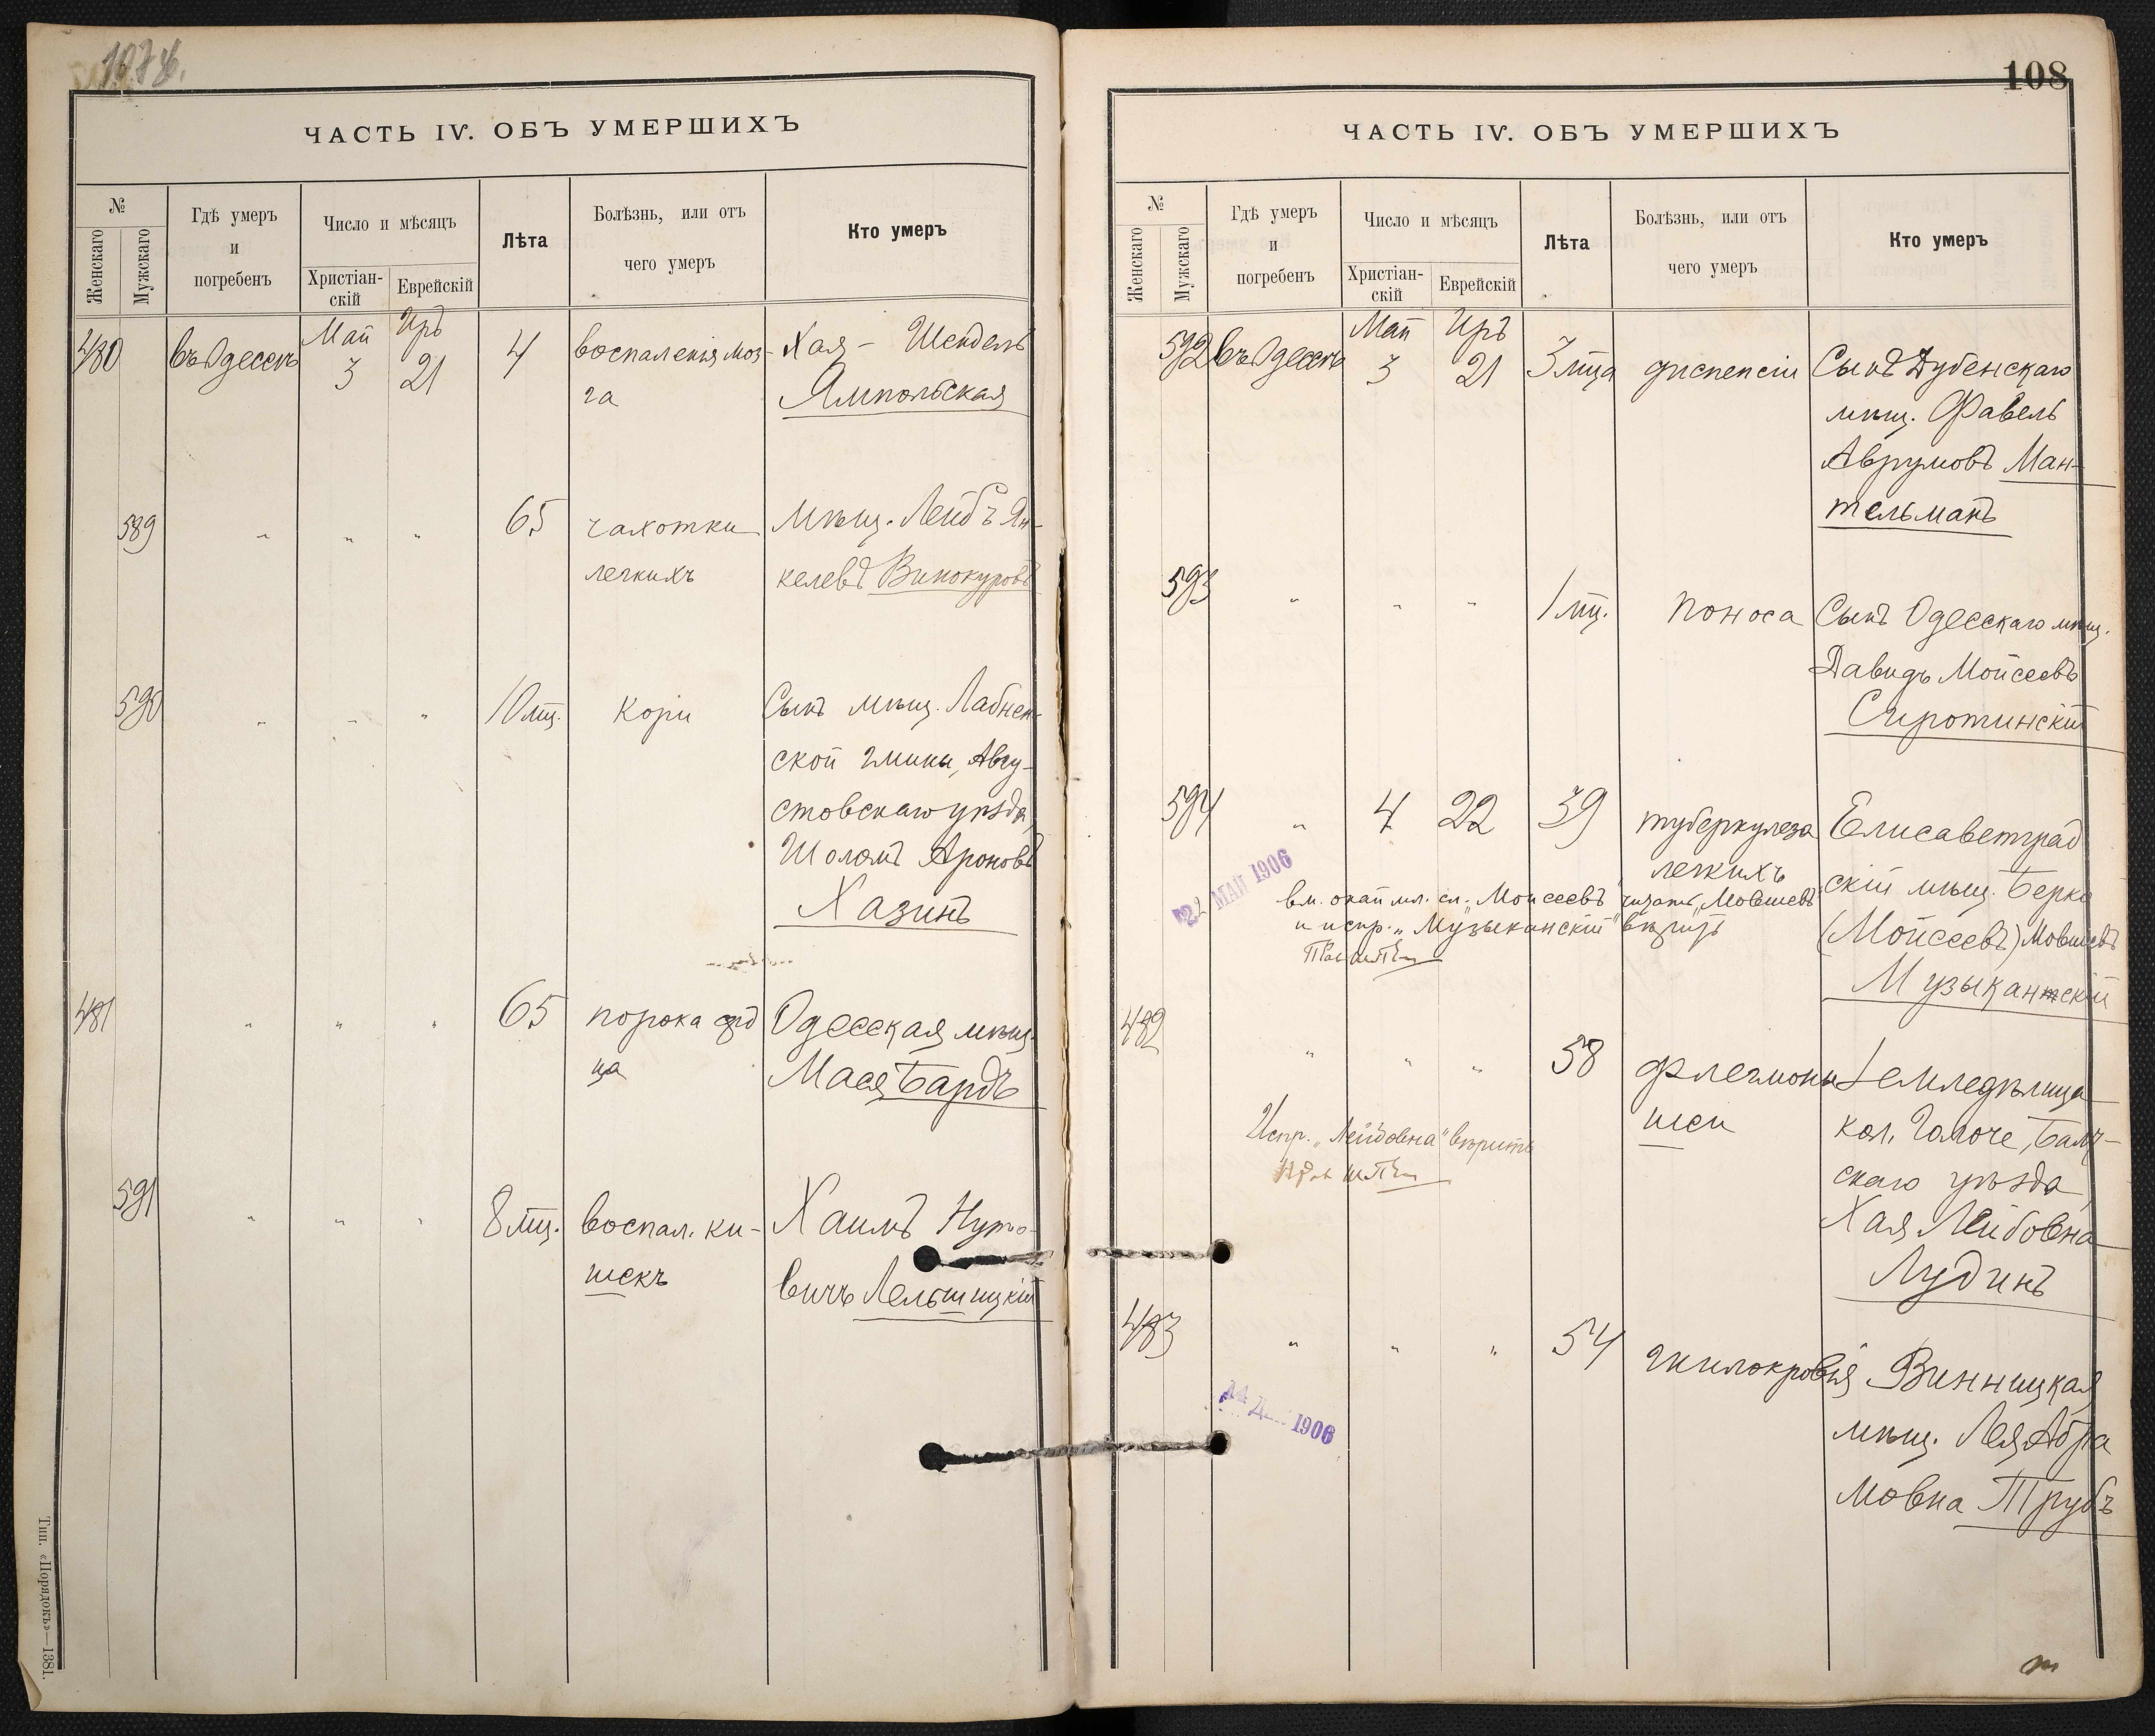 107
ЧАСТЬ IV. ОБЪ УМЕРШИХЪ
№
Женскаго
Мужскаго
Гдѣ умеръ
и
погребенъ
Число и мѣсяцъ
Христіан-
скій
Еврейскій
Лѣта
Болѣзнь, или отъ
чего умеръ
Кто умеръ
480 въ Одессѣ Май 3 Иръ 21 4 воспаленія моз- Хая - Шендель
га Ямпольская
589 " " " 65 чахотки мѣщ. Лейбъ Ян-
легкихъ келевъ Винокуровъ
590 " " " 10 мц. Кори Сынъ мѣщ. Лабнен-
ской гмины, Авгу-
стовскаго уѣзда,
Шоломъ Ароновъ
Хазинъ
481 " " " 65 порока срд Одесская мѣщ.
ца Мася Бардъ
591 " " " 8 мц. воспал. ки- Хаимъ
шекъ вичъ Лельшицкій
Тип. «Порядокъ»—1381.
108
ЧАСТЬ IV. ОБЪ УМЕРШИХЪ
№
Женскаго
Мужскаго
Гдѣ умеръ
и
погребенъ
Число и мѣсяцъ
Христіан-
скій
Еврейскій
Лѣта
Болѣзнь, или отъ
чего умеръ
Кто умеръ
592 въ Одессѣ Май 3 Иръ 21 3 мца диспепсіи Сынъ Дубенскаго
мѣщ. Фавель
Аврумовъ Ман-
тельманъ
593 " " " 1 мц. поноса Сынъ Одесскаго мѣщ.
Давидъ Мойсеевъ
Сиротинскій
594 " 4 22 39 туберкулеза Елисаветград
легкихъ скій мѣщ. Берко
22 МАЙ 1906
вм. окайм. сл. „Мойсеевъ" читать „Мовшевъ"
и испр. „Музыкантскій" вѣрить
(Мойсеевъ) Мовшевъ
Музыкантскій
482 " " " 58 флегмоны Земледѣлица
шеи кол. Гамоче, Балт-
скаго уѣзда
Испр. „Лейбовна" вѣрить
Хая Лейбовна
Лудинъ
483 " " " 54 гнилокровія Винницкая
мѣщ. Лея Абра
14 1906
мовна Трубъ